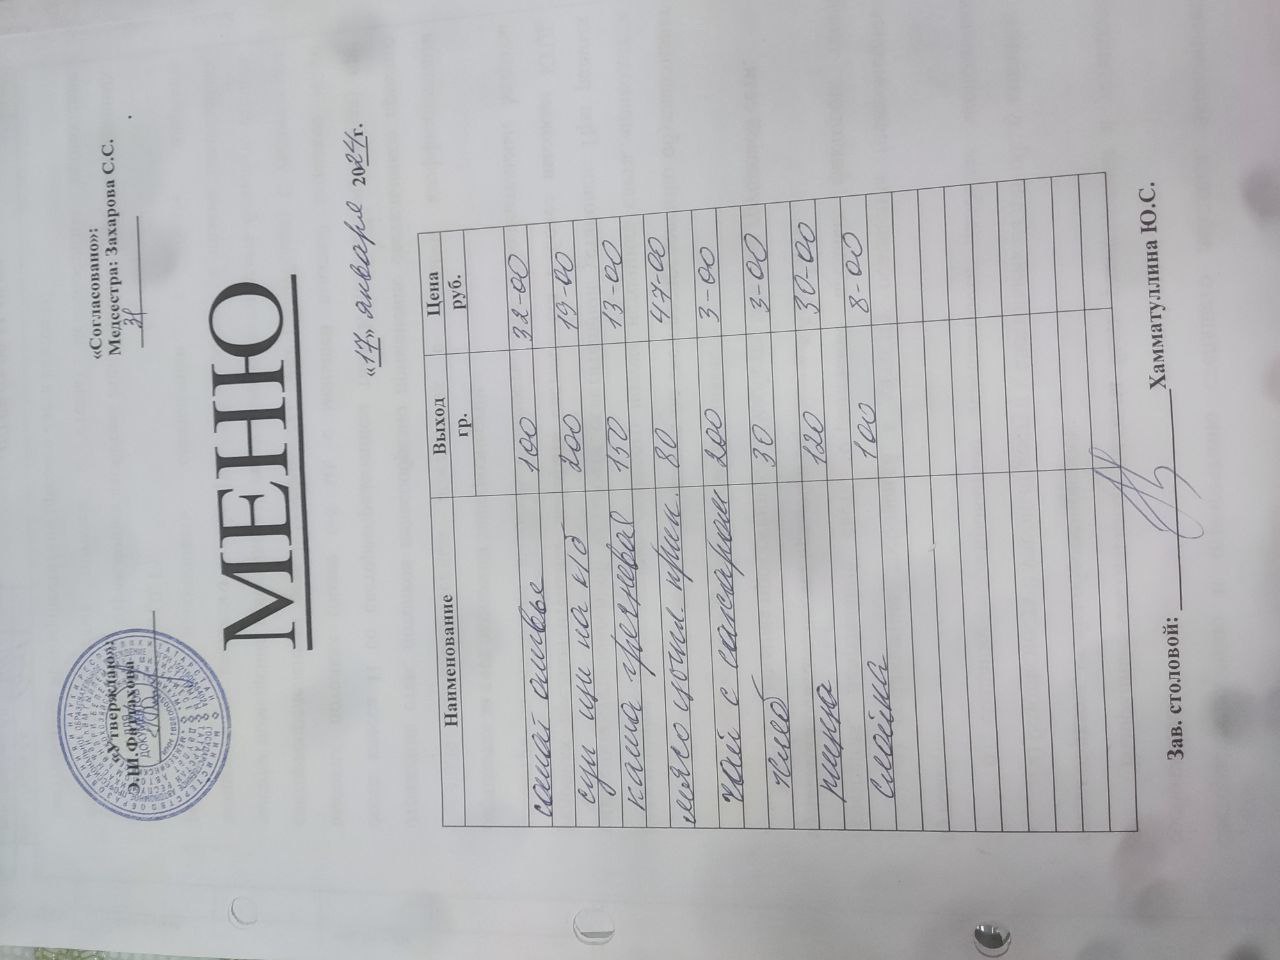 «Утверждаю»:
Э.Ш.Фаттахова
«Согласовано»:
Медсестра: Захарова С.С.
МЕНЮ
«17» января 2024г.
Наименование Выход гр. Цена руб.
салат оливье 100 32-00
суп щи на к/б 200 19-00
каша гречневая 150 13-00
мясо цыпл. прип. 80 47-00
чай с сахаром 200 3-00
хлеб 30 3-00
пицца 120 30-00
слойка 100 8-00
Зав. столовой: Хамматуллина Ю.С.